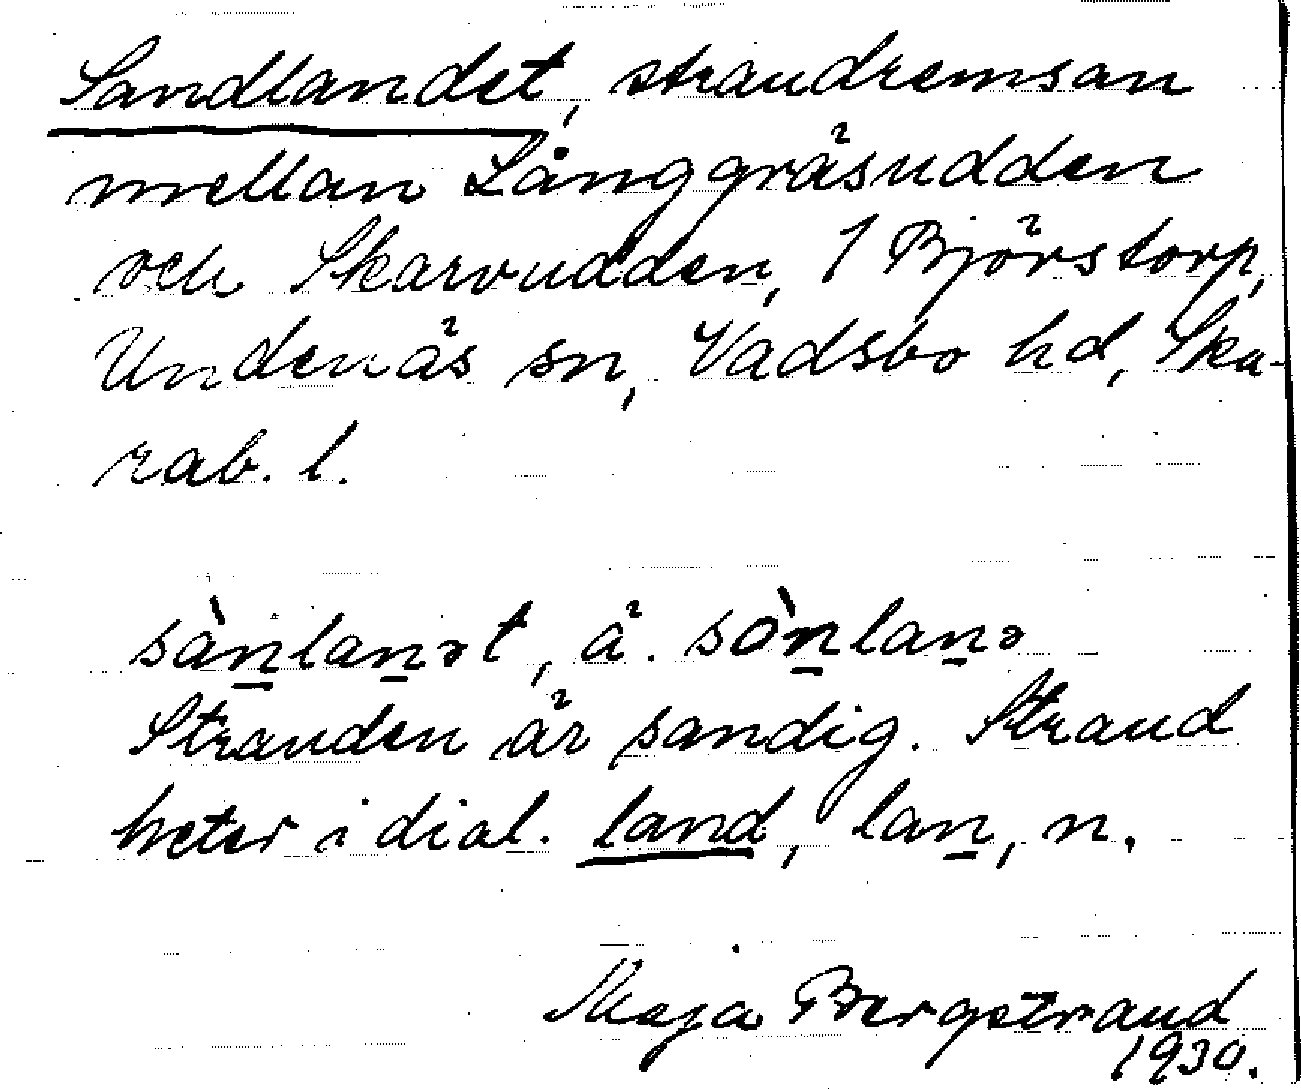 Sandlandet, strandremsan
mellan Långgräsudden
och Skarvudden, 1 Björstorp,
Undenäs sn, Vadsbo hd, Ska-
rab. l.
sàn̲lan̲ət, ä. sòn̲lan̲ə
Stranden är sandig. Strand
heter i dial. land, lan̲, n.
Maja Bergstrand
1930.